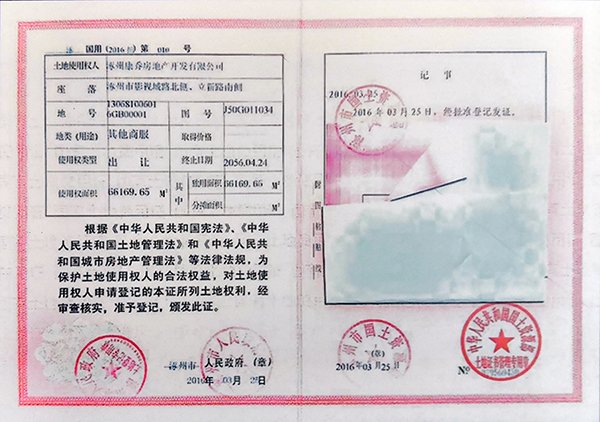 涿 国用(2016)第 010 号
土地使用权人 涿州康乔房地产开发有限公司
座 落 涿州市影视城路北侧、立新路南侧
地 号 130681006016GB00001 图 号 J50G011034
地类(用途) 其他商服 取得价格
使用权类型 出 让 终止日期 2056.04.24
使用权面积 66169.65 M² 其中 独用面积 66169.65 M²
分摊面积 M²
根据《中华人民共和国宪法》、《中华
人民共和国土地管理法》和《中华人民共
和国城市房地产管理法》等法律法规,为
保护土地使用权人的合法权益,对土地使
用权人申请登记的本证所列土地权利,经
审查核实,准予登记,颁发此证。
涿州市 人民政府(章)
2016年 03月 25日
记 事
2016-03-25
2016年03月25日,经批准登记发证。
州市国土资
附图粘贴线
州市国土资源
(章)
2016年03月25日
中华人民共和国国土资源部
土地证书管理专用章
Nº